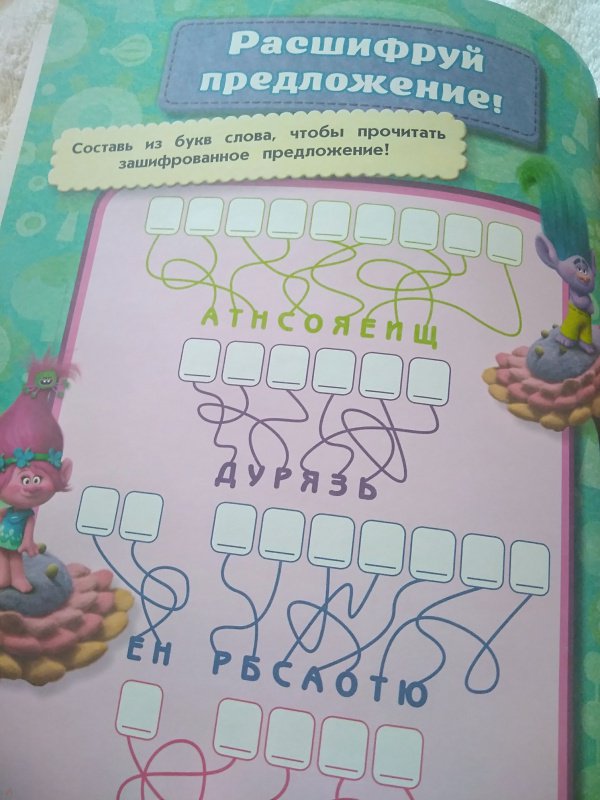 Расшифруй
предложение!
Составь из букв слова, чтобы прочитать
зашифрованное предложение!
АТНСОЯЕИЩ
ДУРЯЗБ
ЕН РБСАОТЮ